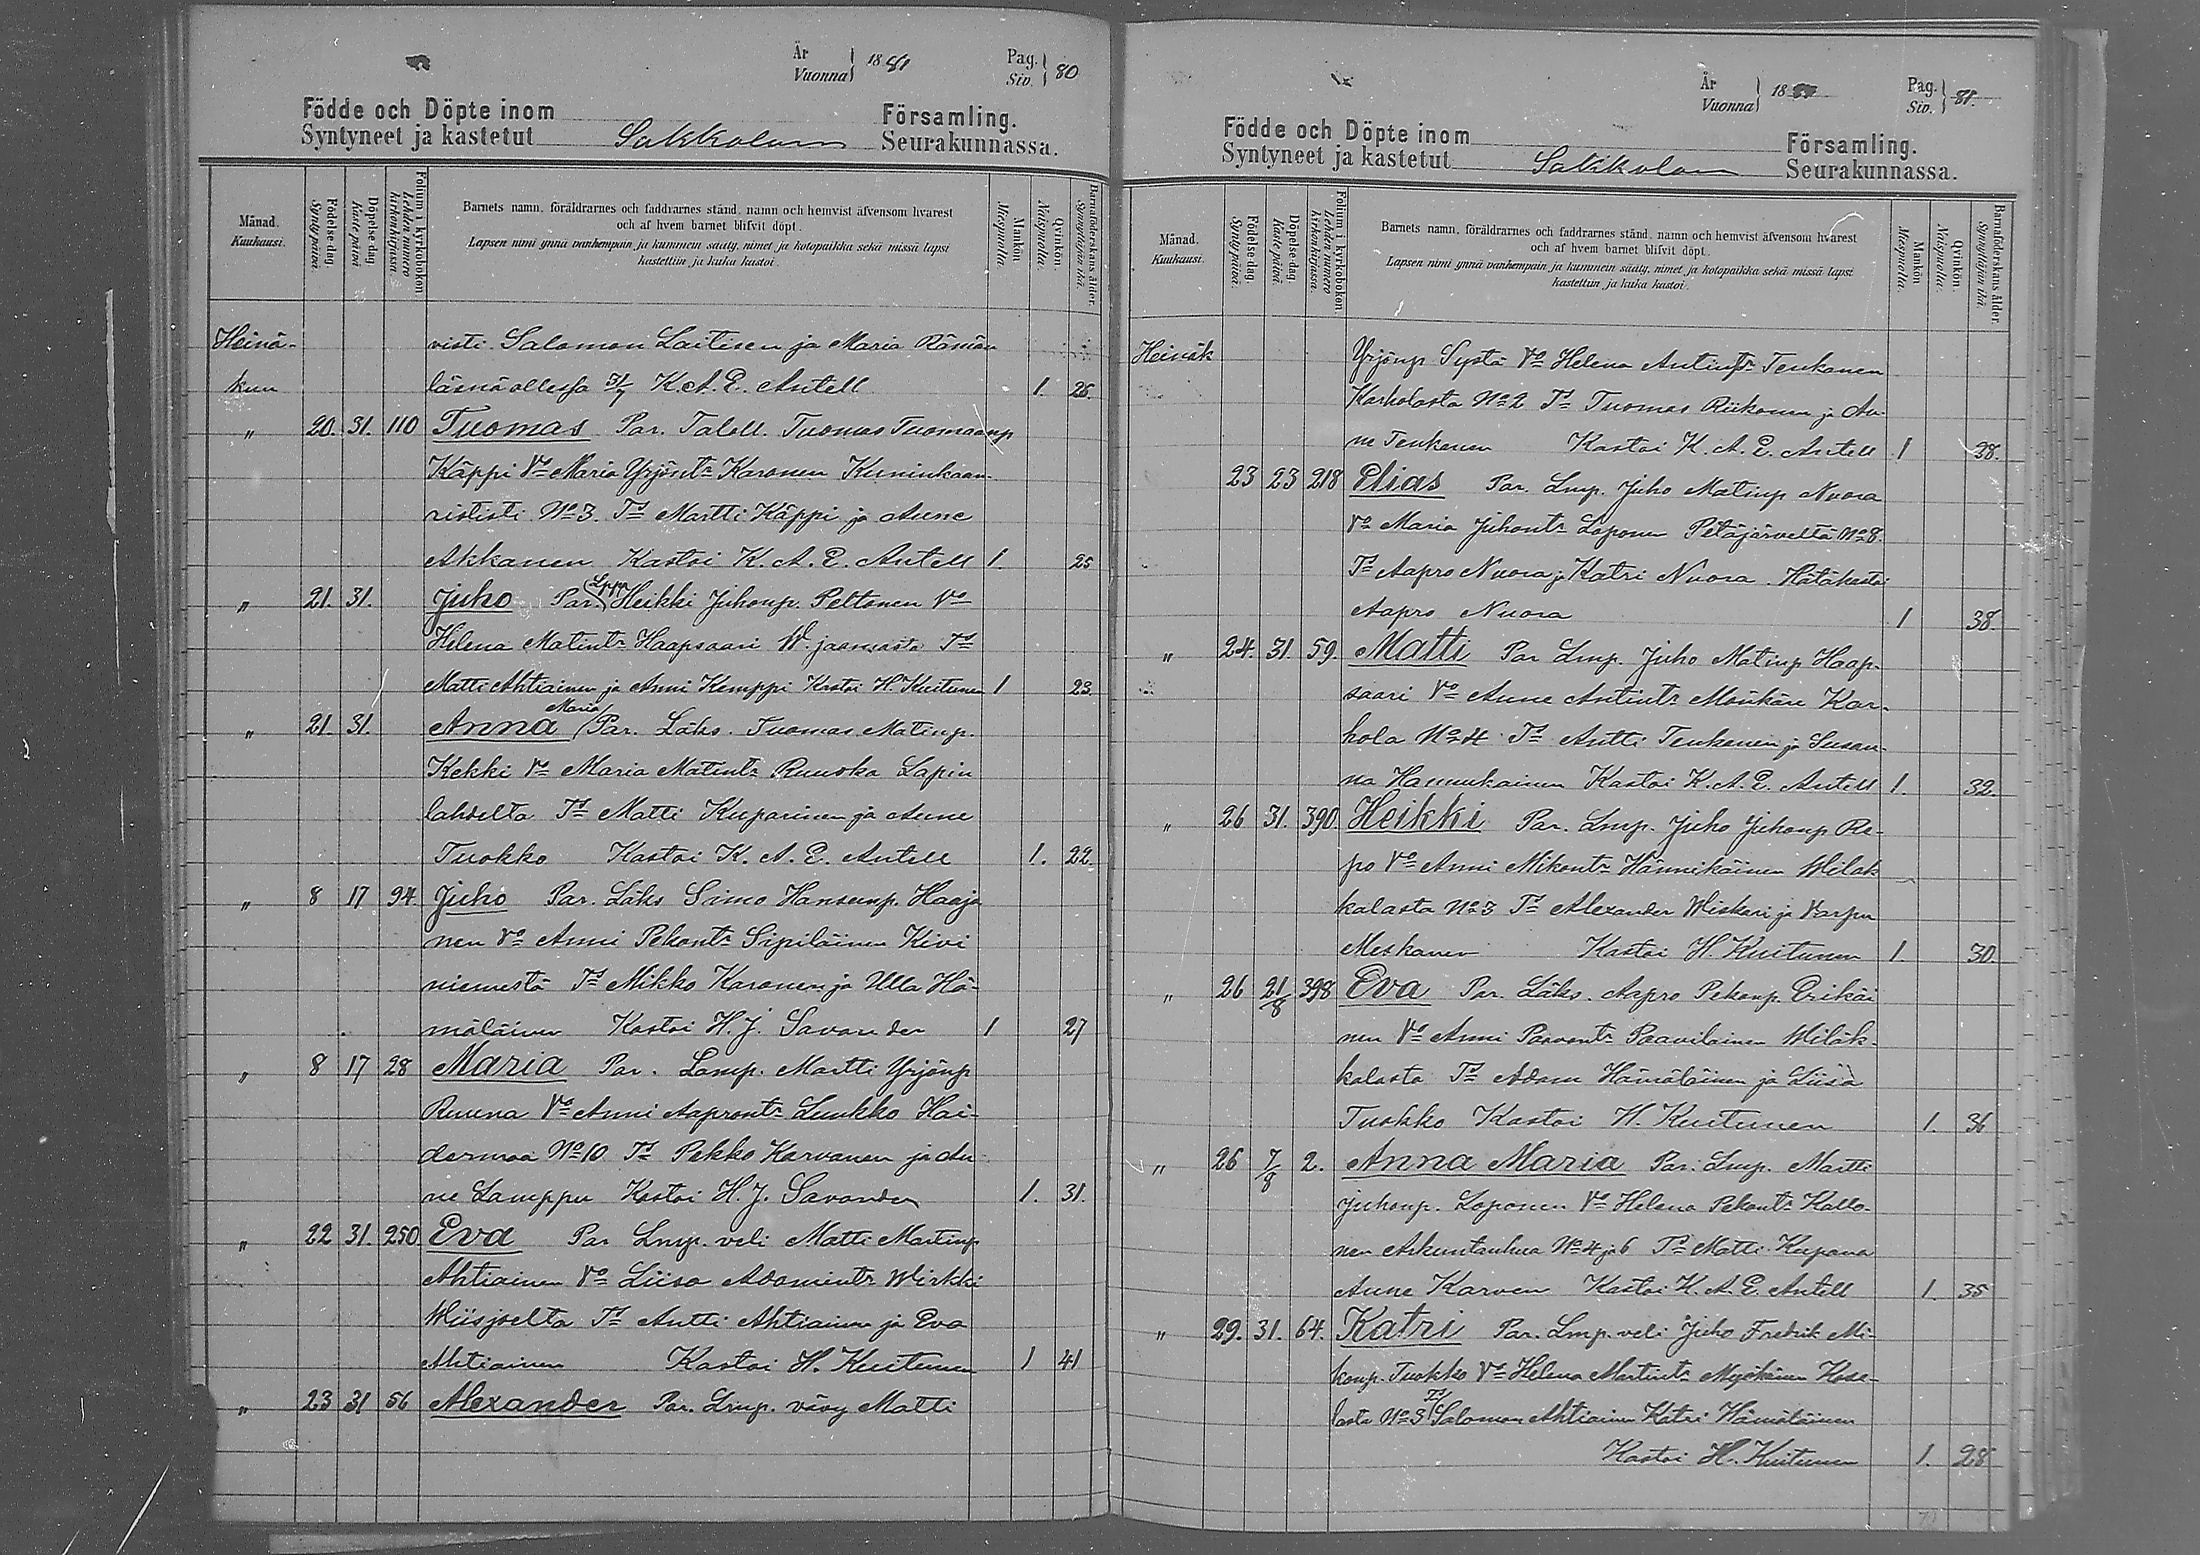 År Vuonna 1881 Pag. Siv. 80
Födde och Döpte inom Församling.
Syntyneet ja kastetut Sakkolan Seurakunnassa.
Månad. Kuukausi. Födelse dag. Synty päivä. Döpelse dag. Kaste päivä. Folium i kyrkoboken. Lehden numero kirkonkirjassa. Barnets namn, föräldrarnes och faddrarnes stånd, namn och hemvist äfvensom hvarest och af hvem barnet blifvit döpt. Mankön. Miespuolta. Qvinkön. Naispuolta. Barnaföderskans ålder. Synnyttäjän ikä.
Lapsen nimi ynnä vanhempain ja kummein sääty, nimet ja kotopaikka sekä missä lapsi
kastettiin ja kuka kastoi.
Heinä- visti Salomon Laitisen ja Maria
kun läsnä ollessa 31/7 K. A. E. Antell 1. 26.
" 20. 31. 110 Tuomas Par. Taloll. Tuomas Tuomaanp
Käppi Vo Maria Yrjönt. Karonen Kuninkaan-
rististi No 3. Ts Martti Käppi ja Aune
Akkanen Kastoi K. A. E. Antell 1. 25
" 21. 31. Juho Par. Lppr Heikki Juhonp. Peltonen Vo
Helena Matintr Haapsaari W. jaamasta Ts
Matti Ahtiainen ja Anni Kemppi Kastoi H. Kuitunen 1 23.
" 21. 31. Anna Maria Par. Läks. Tuomas Matinp.
Kekki Vo Maria Matintr Ruuska Lapin
lahdelta Ts Matti Kuparinen ja Aune
Tuokko Kastoi K. A. E. Antell 1. 22.
" 8 17 94 Juho Par. Läks Simo Hansunp. Haaja
nen Vo Anni Pekontr Sipiläinen Kivi
niemestä Ts Mikko Karonen ja Ulla Hä-
mäläinen Kastoi H. J. Savander 1 27
" 8 17 28 Maria Par. Lamp. Martti Yrjönp
Ruuna Vo Anni Aaprontr Luukko Hai-
dermaa No 10 Ts Pekko Karvanen ja Au-
ne Lamppu Kastoi H. J. Savander 1. 31.
" 22 31. 250 Eva Par Lmp. veli Matti Martinp
Ahtiainen Vo Liisa Adamintr Wirkki
Wiisjoelta Ts Antti Ahtiainen ja Eva
Ahtiainen Kastoi H. Kuitunen 1 41
" 23 31 56 Alexander Par. Lmp. vävy Matti
År Vuonna 18 Pag. Siv. 81
Födde och Döpte inom Församling.
Syntyneet ja kastetut Sakkolan Seurakunnassa.
Månad. Kuukausi. Födelse dag. Synty päivä. Döpelse dag. Kaste päivä. Folium i kyrkoboken. Lehden numero kirkonkirjassa. Barnets namn, föräldrarnes och faddrarnes stånd, namn och hemvist äfvensom hvarest och af hvem barnet blifvit döpt. Mankön. Miespuolta. Qvinkön. Naispuolta. Barnaföderskans ålder. Synnyttäjän ikä.
Lapsen nimi ynnä vanhempain ja kummein sääty, nimet ja kotopaikka sekä missä lapsi
kastettiin ja kuka kastoi.
Heinäk Yrjönp Systä Vo Helena Antintr Tenkanen
Karholasta No 2 Ts Tuomas Riikonen ja Au-
ne Tenkanen Kastoi K. A. E. Antell 1 38.
23 23 218 Elias Par. Lmp. Juho Matinp Nuora
Vo Maria Juhontr Loponen Petäjärveltä No 8.
Ts Aapro Nuora ja Katri Nuora. Hätäkastoi
Aapro Nuora 1 38.
" 24. 31. 59. Matti Par Lmp. Juho Matinp Haap-
saari Vo Aune Antintr Mönkäre Kar-
hola No 4 Ts Antti Tenkanen ja Susan-
na Hannukainen Kastoi K. A. E. Antell 1. 32.
" 26 31. 390. Heikki Par. Lmp. Juho Juhonp Re-
po Vo Anni Mikontr Hännikäinen Wilak
kalasta No 3 Ts Alexander Wiskari ja Varpu
Meskanen Kastoi H. Kuitunen 1. 30.
" 26 21/8 398 Eva Par. Läks. Aapro Pekonp. Erikäi
nen Vo Anni Paavontr Paavilainen Wiläk-
kalasta Ts Adam Hämäläinen ja Liisa
Tuokko Kastoi H. Kuitunen 1. 36
" 26 7/8 2. Anna Maria Par. Lmp. Martti
Juhonp. Loponen Vo Helena Pekontr Kallo-
nen Arkuntanhua No 4 ja 6 Ts Matti Kupana
Aune Karven Kastoi K. A. E. Antell 1. 35
" 29. 31. 64. Katri Par. Lmp. veli Juho Fredrik Mi-
konp. Tuokko Vo Helena Martintr Myöhänen Hase-
lasta No 5 Ts Salomon Ahtiainen Katri Hämäläinen
Kastoi H. Kuitunen 1. 28